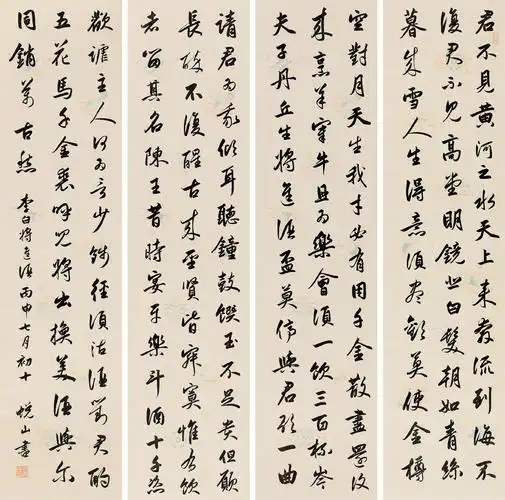 君不見黄河之水天上来奔流到海不
復君不見高堂明鏡悲白髮朝如青絲
暮成雪人生得意須盡歡莫使金樽
空對月天生我才必有用千金散盡還復
来烹羊宰牛且為樂會須一飲三百杯岑
夫子丹丘生將進酒盃莫停與君歌一曲
請君為我傾耳聽鐘鼓饌玉不足貴但願
長醉不復醒古来聖賢皆寂寞惟有飲
者留其名陳王昔時宴平樂斗酒十千恣
歡謔主人何為言少錢徑須沽酒對君酌
五花馬千金裘呼兒將出換美酒與尔
同銷萬古愁 李白將進酒丙申七月初十 悦山書